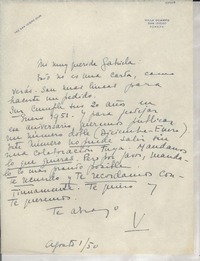 Mi muy querida Gabriela
Esto no es una carta, como
verás. Son unas líneas para
hacerte un pedido.
Sur cumple sus 20 años en
Enero 1951. Y para festejar
su aniversario queremos publicar
un número doble (Diciembre-Enero).
Este número no puede salir sin
una colaboración tuya. Mandanos
lo que quieras. Pero por favor, mandá-
lo lo más pronto posible.
Te recuerdo y te recordamos con-
tinuamente. Te quiero y
te queremos.
Te abrazo
V
Agosto 1/50